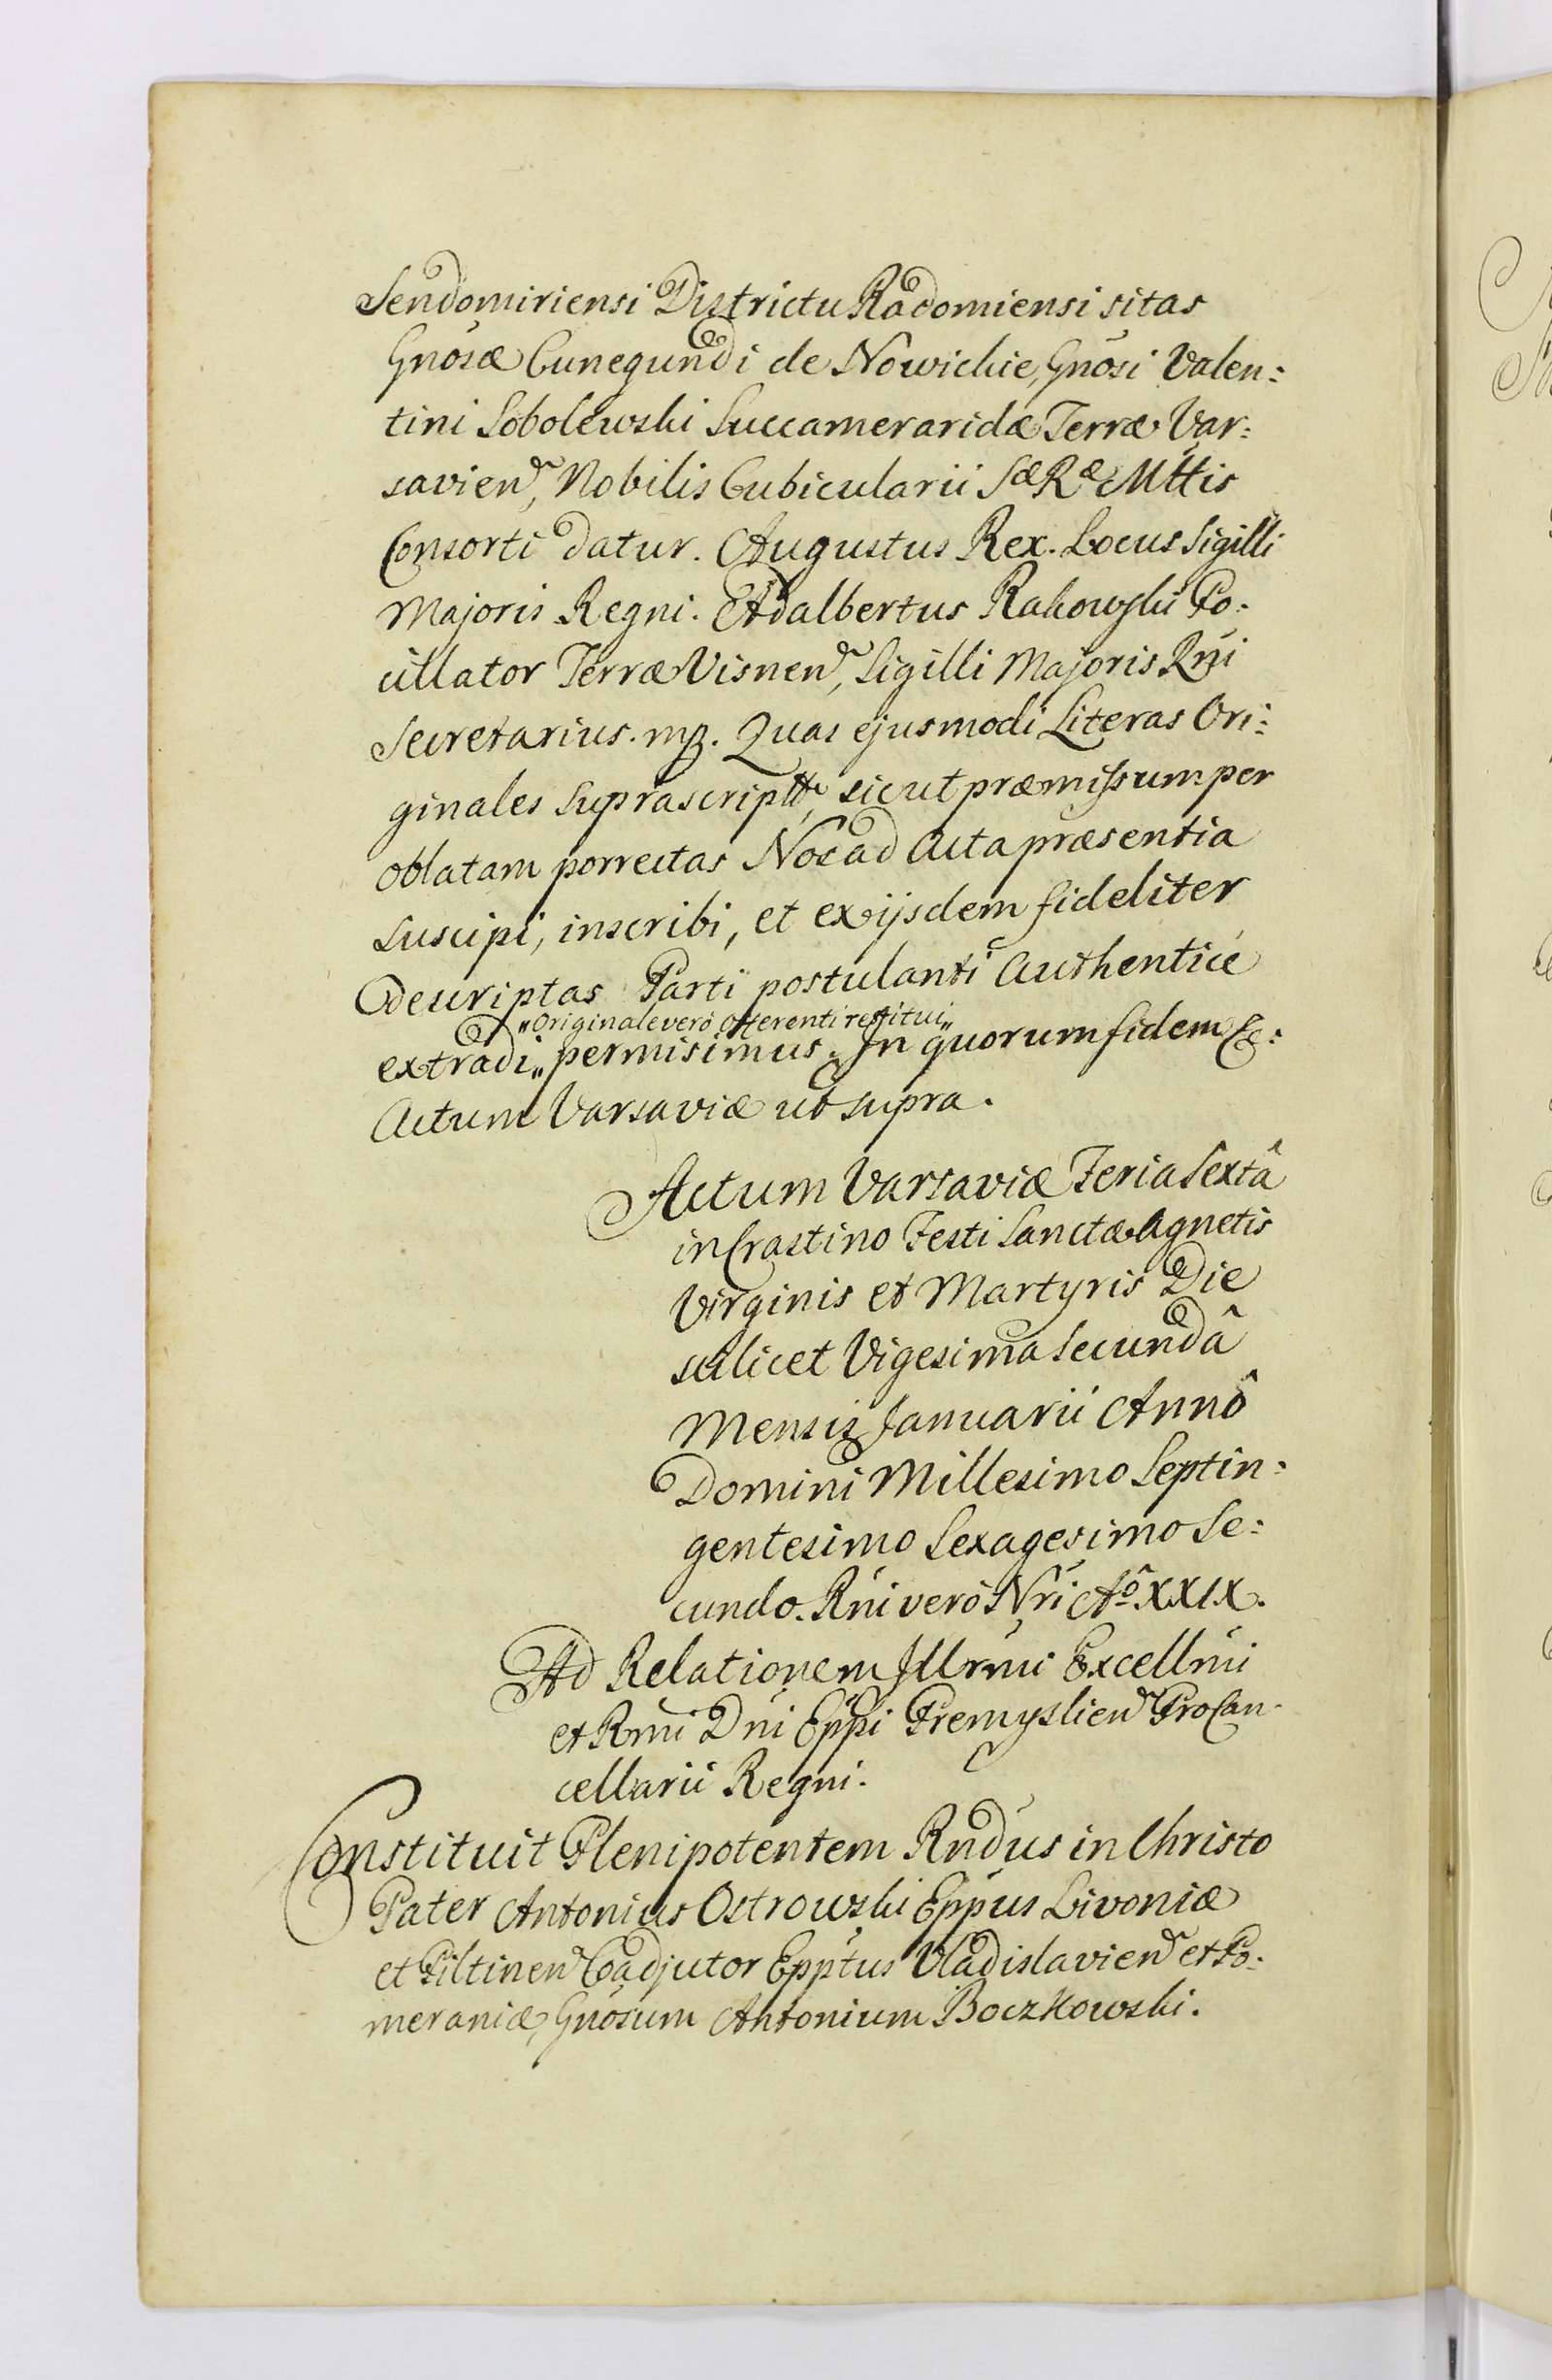 Sendomiriensi Districtu Radomiensi sitas
Gnosæ Cunegundi de Nowickie, Gnosi Valen:
tini Sobolewski Succameraridæ Terræ Var:
savien, Nobilis Cubicularii Sæ Ræ Mttis
Consorti datur. Augustus Rex. Locus Sigilli
Majoris Regni. Adalbertus Rakowski Po:
cillator Terræ Visnen, Sigilli Majoris Rni
Secretarius. mp. Quas ejusmodi Literas Ori:
ginales suprascriptt, sicut præmissum per
oblatam porrectas Nos ad Acta præsentia
suscipi, inscribi, et ex ijsdem fideliter
descriptas Parti postulanti Authenticè
"Originale verò offerenti restitui"
extradi" permisimus. In quorum fidem &c:
Actum Varsaviæ ut supra.
Actum Varsaviæ Feria Sextâ
in Crastino Festi Sanctæ Agnetis
Virginis et Martyris Die
scilicet Vigesima Secundâ
Mensis Januarii Annô
Domini Millesimo Septin:
gentesimo Sexagesimo Se:
cundo. Rni verò Nri Aô XXIX.
Ad Relationem Illrmi Excellmi
et Rmi Dni Eppi Premyslien ProCan:
cellarii Regni.
Constituit Plenipotentem Rndus in Christo
Pater Antonius Ostrowski Eppus Livoniæ
et Piltinen Coadjutor Epptus Vladislavien et Po:
meraniæ, Gnosum Antonium Boczkowski.